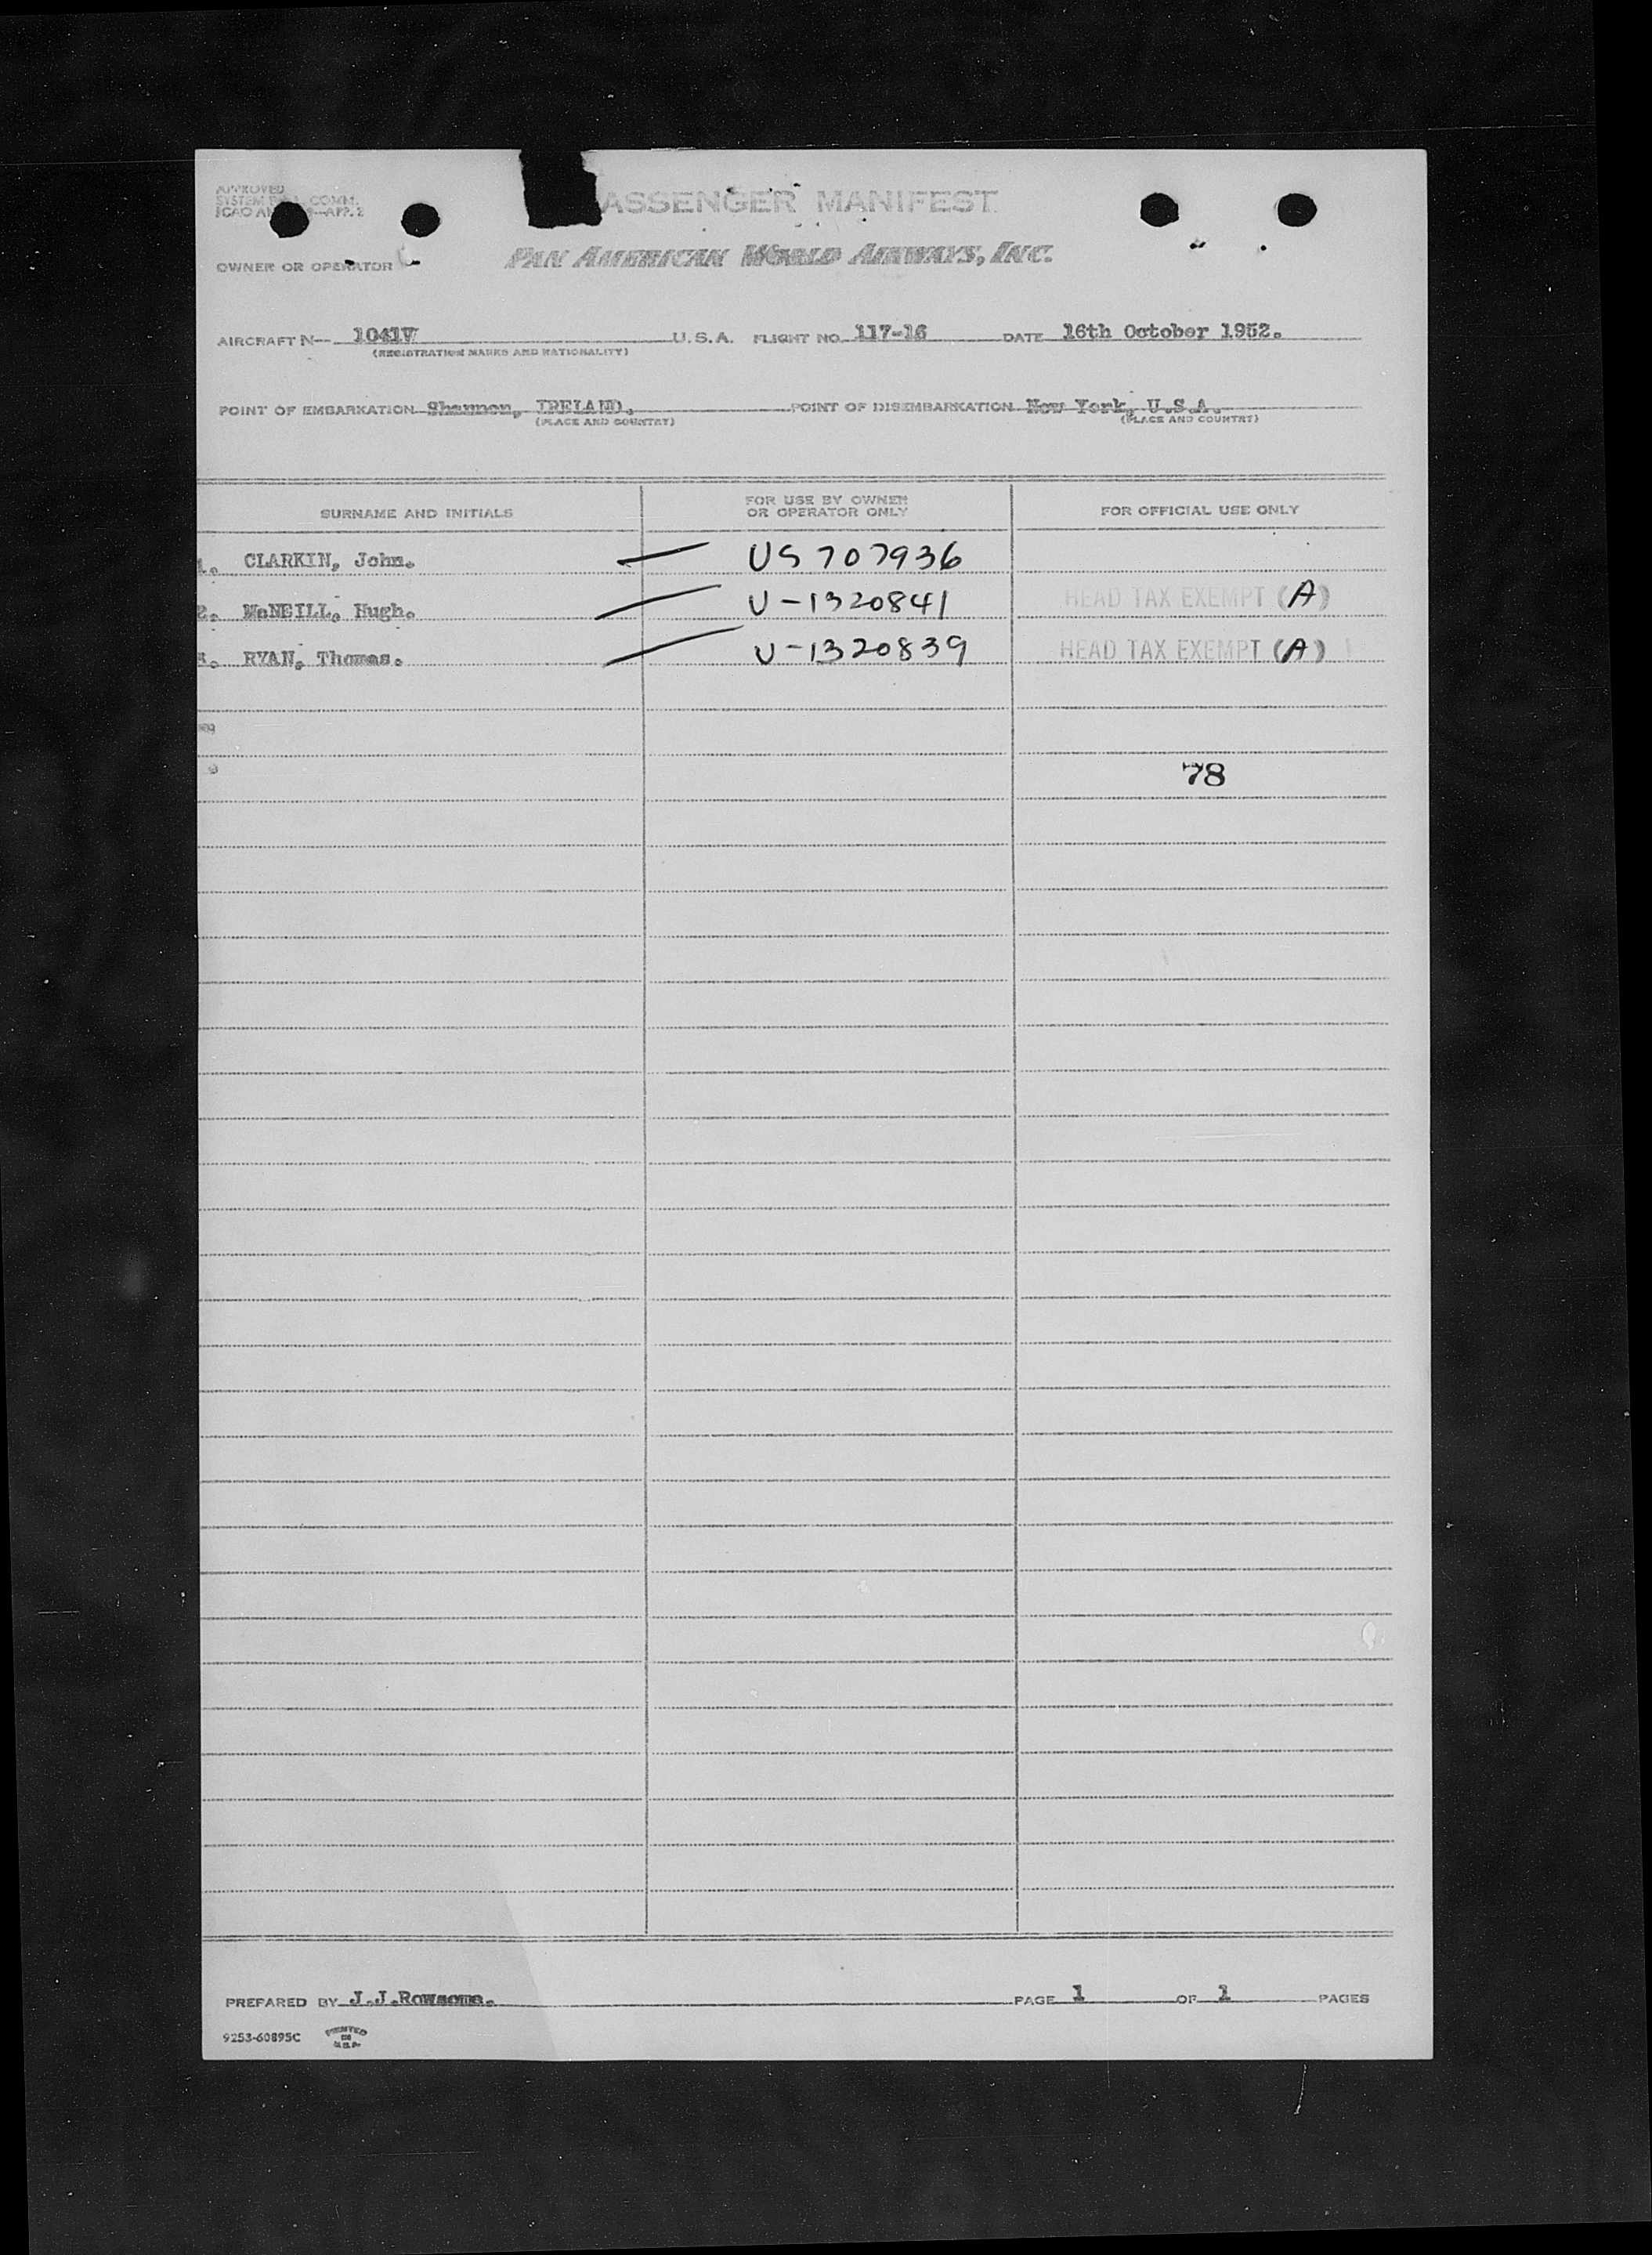 APPROVED
SYSTEM COMM.
ICAO APP. 2
ASSENGER MANIFEST
OWNER OR OPERATOR PAN AMERICAN WORLD AIRWAYS, INC.
AIRCRAFT N- 1041V U.S.A. FLIGHT NO. 117-16 DATE 16th October 1952.
(REGISTRATION MARKS AND NATIONALITY)
POINT OF EMBARKATION Shannon, IRELAND. POINT OF DISEMBARKATION New York, U.S.A.
(PLACE AND COUNTRY) (PLACE AND COUNTRY)
SURNAME AND INITIALS FOR USE BY OWNER OR OPERATOR ONLY FOR OFFICIAL USE ONLY
1. CLARKIN, John. US 707936
2. McNEILL, Hugh. U-1320841 HEAD TAX EXEMPT (A)
3. RYAN, Thomas. U-1320839 HEAD TAX EXEMPT (A)
78
PREPARED BY J.J.Rowsome. PAGE 1 OF 1 PAGES
9253-60895C PRINTED IN U.S.A.